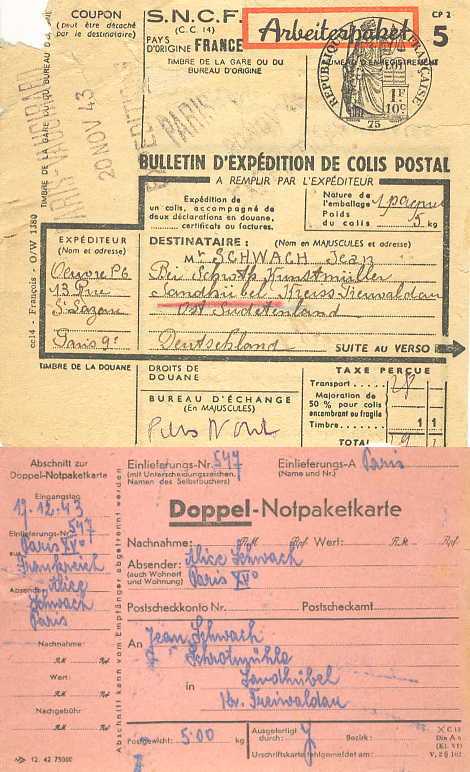 COUPON
(peut être détaché
par le destinataire)
S.N.C.F.
(C.C. 14)
PAYS
D'ORIGINE FRANCE
TIMBRE DE LA GARE OU DU
BUREAU D'ORIGINE
Arbeiterpaket
CP 2
5
NUMÉRO D'ENREGISTREMENT
RÉPUBLIQUE FRANÇAISE
1F
10c
75
TIMBRE DE LA GARE OU DU BUREAU D'ORIGINE
20 NOV 43
PARIS
BULLETIN D'EXPÉDITION DE COLIS POSTAL
A REMPLIR PAR L'EXPÉDITEUR
Expédition de
un colis, accompagné de
deux déclarations en douane,
certificats ou factures.
Nature de
l'emballage 1 paquet
Poids
du colis 5 kg
cc14 - François - O/W 1380
EXPÉDITEUR
(Nom et adresse)
Oeuvre P6
13 Rue
St Lazare
Paris 9e
DESTINATAIRE: (Nom en MAJUSCULES et adresse)
Mr SCHWACH Jean
Bei Kunstmüller
Sandhübel Kreiss Freiwaldau
Ost Sudetenland
Deutschland
SUITE AU VERSO
TIMBRE DE LA DOUANE
DROITS DE
DOUANE
BUREAU D'ÉCHANGE
(En MAJUSCULES)
Paris Nord
TAXE PERÇUE
Transport 28
Majoration de
50 % pour colis
encombrant ou fragile
Timbre 1 1
TOTAL 29 1
Abschnitt zur
Doppel-Notpaketkarte
Eingangstag
17.12.43
Einlieferungs-Nr. 547
aus
Paris XVo
Frankreich
Absender: Alice
Schwach
Paris
Nachnahme:
RM Rpf
Wert:
RM Rpf
Nachgebühr
RM Rpf
12. 42 75000
Abschnitt kann vom Empfänger abgetrennt werden
Einlieferungs-Nr. 547
(mit Unterscheidungszeichen,
Namen des Selbstbuchers)
Einlieferungs-A Paris
(Name und Nr.)
Doppel-Notpaketkarte
Nachnahme: RM Rpf Wert: RM Rpf
Absender: Alice Schwach
(auch Wohnort
und Wohnung) Paris XVo
Postscheckkonto Nr. Postscheckamt
An Jean Schwach
Schrotmühle
in Sandhübel
Kr. Freiwaldau
Postgewicht: 5.00 kg
Ausgefertigt
durch: Bezirk:
Urschriftskarte fehlgemeldet am:
X C 15
Din A 6
(Kl. 97)
V, 2 § 162